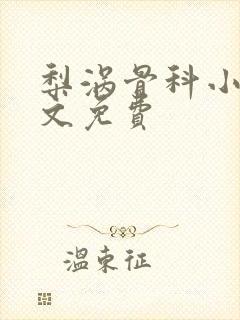 梨涡骨科小
文免費
温束征